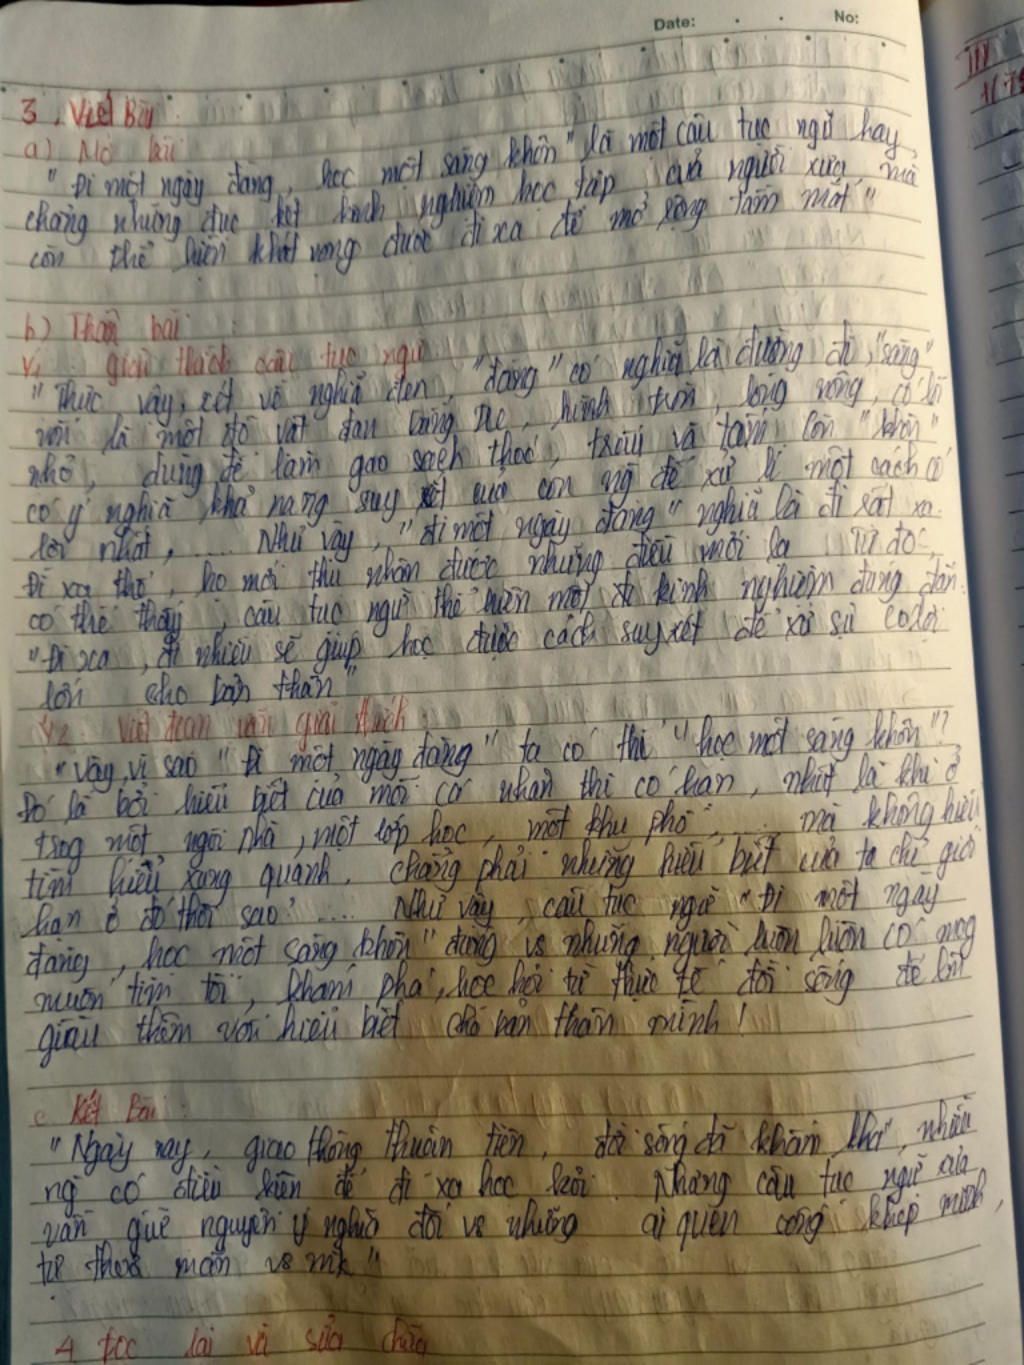 Date: No:
3. Viết Bài
a) Mở bài
"Đi một ngày đàng, học một sàng khôn" là một câu tục ngữ hay,
chẳng những đúc kết kinh nghiệm học tập của người xưa, mà
còn thể hiện khát vọng được đi xa để mở rộng tầm mắt"
b) Thân bài
giải thích câu tục ngữ
"Thực vậy, xét về nghĩa đen, "đàng" có nghĩa là đường đi, "sàng"
vốn là một đồ vật đan bằng tre, hình tròn, lòng nông, có lỗ
nhỏ, dùng để làm gạo sạch thóc, trấu và tấm. Còn "khôn"
có ý nghĩa khả năng suy xét của con ng để xử lí một cách có
lợi nhất, .... Như vậy, "đi một ngày đàng" nghĩa là đi rất xa.
Đi xa thế, họ mới thu nhận được những điều mới lạ. Từ đó,
có thể thấy, câu tục ngữ thể hiện một kinh nghiệm đúng đắn.
"Đi xa, đi nhiều sẽ giúp học được cách suy xét để xử sự có lợi
lớn cho bản thân"
Viết đoạn văn giải thích:
"Vậy, vì sao "Đi một ngày đàng" ta có thể "học một sàng khôn"?
Đó là bởi hiểu biết của mỗi cá nhân thì có hạn, nhất là khi ở
trog một ngôi nhà, một lớp học, một khu phố, .... mà không hiểu
tìm hiểu xung quanh. Chẳng phải những hiểu biết của ta chỉ giới
hạn ở đó thôi sao? .... Như vậy, câu tục ngữ "Đi một ngày
đàng, học một sàng khôn" đúng vs những người luôn luôn có mog
muốn tìm tòi, khám phá, học hỏi từ thực tế đời sống để làm
giàu thêm vốn hiểu biết cho bản thân mình!
c Kết Bài:
"Ngày nay, giao thông thuận tiện, đời sống đã khấm khá, nhiều
ng có điều kiện để đi xa học hỏi. Nhưng câu tục ngữ của
vẫn nguyên ý nghĩa đối vs những ai quen cóng khép mình,
tự thỏa mãn vs mk"
4 Đọc lại và sửa chữa